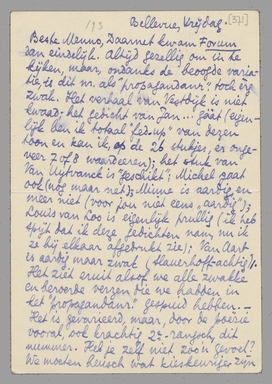 [371]
193
Bellevue, Vrijdag.
Beste Menno, Daarnet kwam Forum
dan eindelijk. Altijd gezellig om in te
kijken, maar, ondanks de beoogde varia-
tie, is dit nr. als "propagandanr." toch erg
zwak. Het verhaal van Vestdijk is niet
kwaad; het gedicht van Jan... gaat (eigen-
lijk ben ik totaal "fed-up" van dezen
toon en kan ik, op de 26 stukjes, er onge-
veer 7 of 8 waardeeren); het stuk van
Van Uytvanck is "geschikt"; Michel gaat
ook (nog maar net); Minne is aardig en
meer niet (voor jou niet eens "aardig");
Louis van Loo is eigenlijk prullig (ik heb
spijt dat ik deze gedichten nam, nu ik
ze bij elkaar afgedrukt zie); Van Aart
is aardig maar zwak (Slauerhoff-achtig).
Het ziet eruit alsof we alle zwakke
en beroerde verzen die we hadden in
het "propagandanr." gespuid hebben. —
Het is gevarieerd, maar, door de poëzie
vooral, ook krachtig 2e-rangsch, dit
nummer. Heb je zelf niet zoo'n gevoel?
We moeten heusch wat kieskeuriger zijn